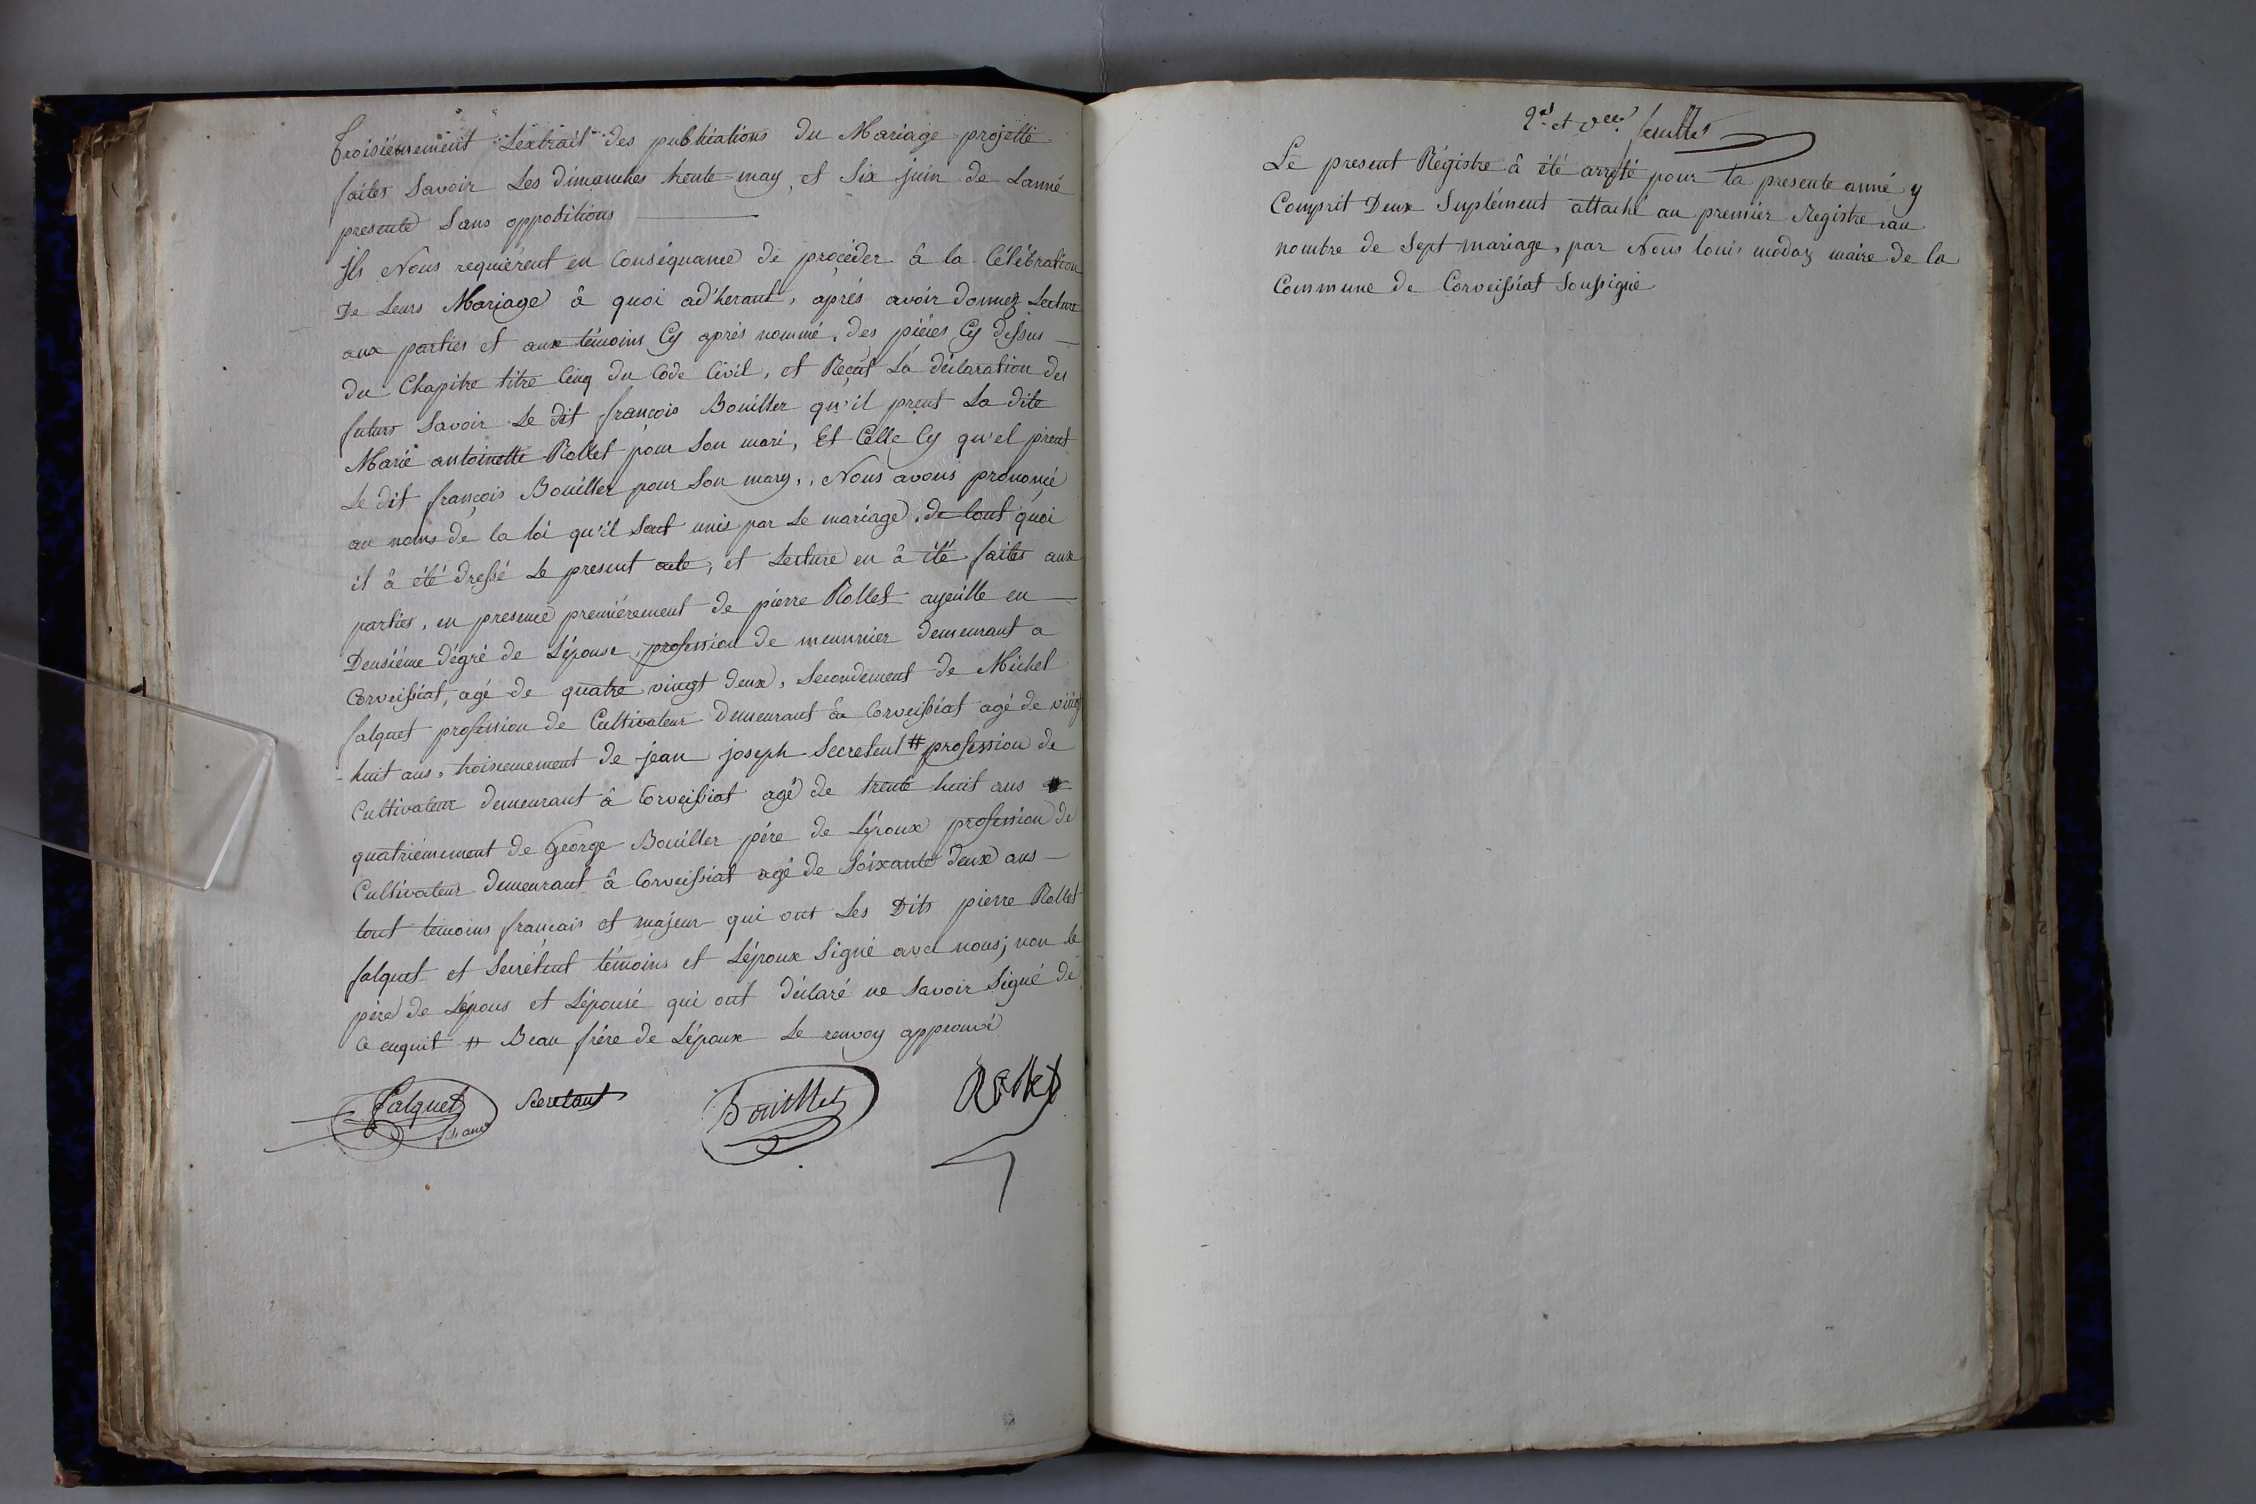 Troisiémement Lextrait des publications du Mariage projetté
faites Savoir Les dimanches trente may, et Six juin de Lanné
presente Sans oppositions
Ils Nous requiérent en Conséquance de procéder â la Célébration
De Leurs Mariage â quoi ad'herant, aprés avóir donnez Lecture
aux parties et aux témoins Cy aprés nommé, des piéces Cy dessus
du Chapitre titre Cinq du Code Civil, et Reçut La déclaration des
futurs Savoir Le dit françois Bouiller qu'il prent La dite
Marie antoinette Rollet pour Son mari, Et Celle Cy qu'el prent
Le dit françois Bouiller pour Son mary, Nous avons prononcé
au noms de la loi qu'il Sont unis par Le mariage, de tout quoi
il â été dressé Le present acte, et Lecture en â été faites aux
parties, en presence premiérement de pierre Rollet ayeuille en
Deusiéme dégré de Lépouse, profession de meunnier demeurant a
Corveissiat, agé de quatre vingt deux, Secondement de Michel
falquet profession de Cultivateur Demeurant â Corveissiat agé de vingt
huit ans, troisiemement de jean joseph Secretent # profession de
Cultivateur demeurant â Corveissiat agé de trente huit ans
quatriémement de George Bouiller pére de Lépoux profession de
Cultivateur demeurant â Corveissiat agé de Soixante deux ans
tout témoins francais et majeur qui ont Les Dits pierre Rollet
falquet et Secrétent témoins et Lépoux Signé avec nous; non le
pére de Lépous et Lépouse qui ont déclaré ne Savoir Signé de
Ce enquit # Beau frére de Lépoux Le renvoy approuvé
Falquet Secretant Bouillet Rollet
2.e et d.er feuillet
Le present Régistre â été arrété pour la presente anné y
Comprit Deux Suplément attaché au premiér Registre au
nombre de Sept mariage, par Nous louis modas maire de la
Commune de Corveissiat Soussigné